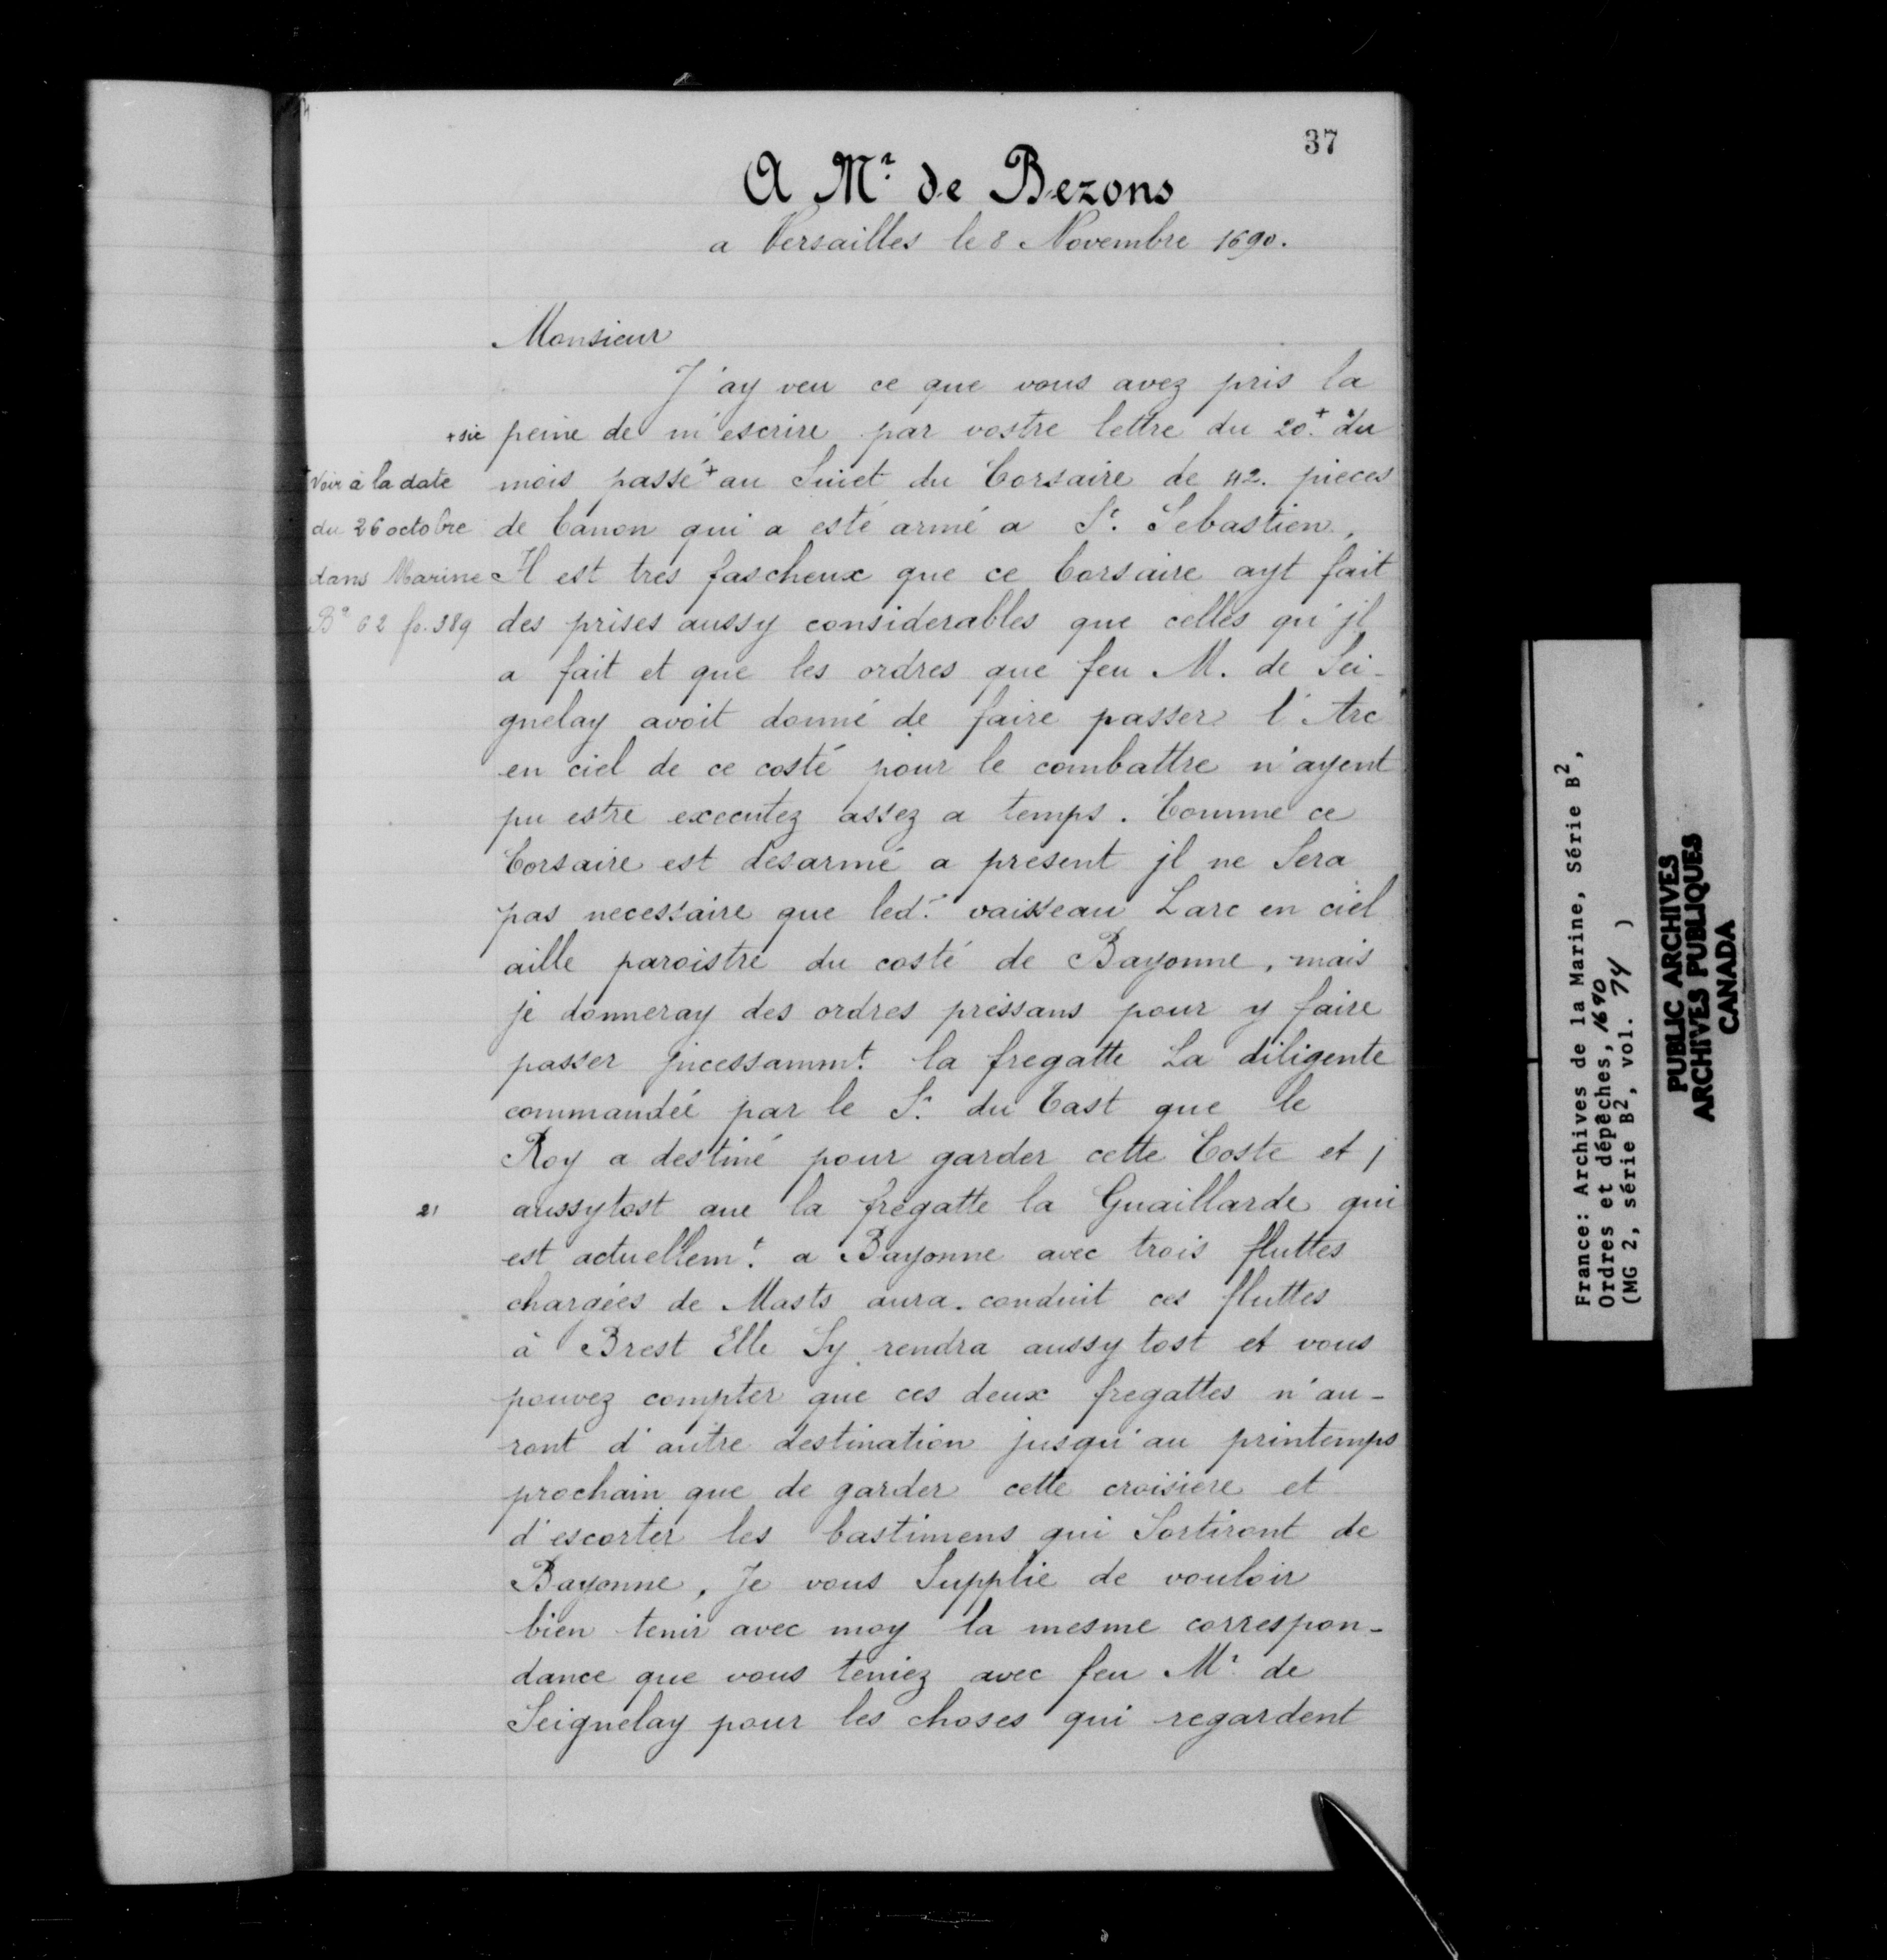 37
A Mr. de Bezons
a Versailles le 8 Novembre 1690.
Monsieur
J'ay veu ce que vous avez pris la
+ sic peine de m'escrire par vostre lettre du 20.+ du
mois passé + au Suiet du Corsaire de 42. pieces
de Canon qui a esté armé a St. Sebastien,
Il est tres fascheux que ce Corsaire ayt fait
des prises aussy considerables que celles qu'jl
a fait et que les ordres que feu M. de Sei-
gnelay avoit donné de faire passer l'Arc
en ciel de ce costé pour le combattre n'ayent
pu estre executez assez a temps. Comme ce
Corsaire est desarmé a present jl ne Sera
pas necessaire que led. vaisseau Larc en ciel
aille paroistre du costé de Bayonne, mais
je donneray des ordres pressans pour y faire
passer jncessammt. la fregatte La diligente
commandée par le Sr. du Tast que le
Roy a destiné pour garder cette Coste et j
aussytost que la fregatte la Guaillarde qui
est actuellemt. a Bayonne avec trois fluttes
chargées de Masts aura conduit ces fluttes
à Brest Elle Sy rendra aussy tost et vous
pouvez compter que ces deux fregattes n'au-
ront d'autre destination jusqu'au printemps
prochain que de garder cette croisiere et
d'escorter les bastimens qui Sortiront de
Bayonne, Je vous Supplie de vouloir
bien tenir avec moy la mesme correspon-
dance que vous teniez avec feu Mr. de
Seignelay pour les choses qui regardent
+ Voir à la date
du 26 octobre
dans Marine
B2 62 fo. 389
21
France: Archives de la Marine, Série B2,
Ordres et dépêches, 1690
(MG 2, série B2, vol. 74 )
PUBLIC ARCHIVES
ARCHIVES PUBLIQUES
CANADA